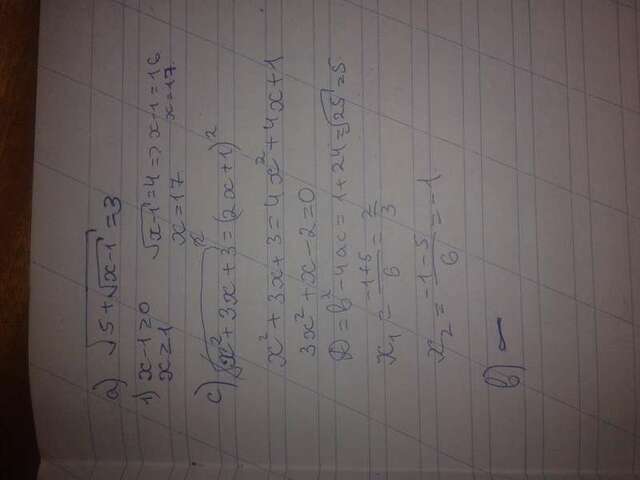 a) √(5+√(x-1)) = 3
1) x-1≥0 √(x-1)=4 => x-1=16
x≥1 x=17 x=17
c) (√(x²+3x+3))² = (2x+1)²
x²+3x+3=4x²+4x+1
3x²+x-2=0
D=b²-4ac=1+24=√25=5
x₁ = (-1+5)/6 = 2/3
x₂ = (-1-5)/6 = -1
b) —